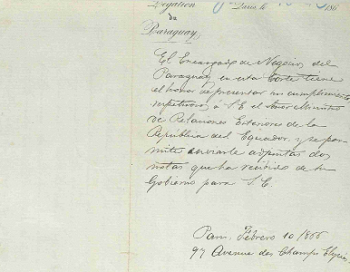 Legation
du
Paraguay
Paris le
186
El Encargado de Negocios del
Paraguay en esta Corte tiene
el honor de presentar sus cumplimientos
respetuosos á S.E. el Señor Ministro
de Relaciones Exteriores de la
República del Ecuador, y se per
mite enviarle adjuntas dos
notas que ha recibido de su
Gobierno para S.E.
Paris, Febrero 10/866
97 Avenue des Champs Elysées